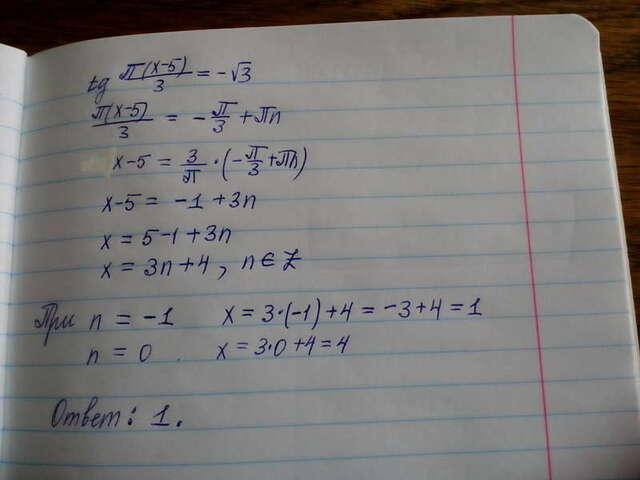 tg π(x-5)/3 = -√3
π(x-5)/3 = -π/3 + πn
x-5 = 3/π · (-π/3 + πn)
x-5 = -1 + 3n
x = 5-1 + 3n
x = 3n+4, n ∈ Z
При n = -1 x = 3·(-1)+4 = -3+4 = 1
n = 0 x = 3·0+4 = 4
Ответ: 1.